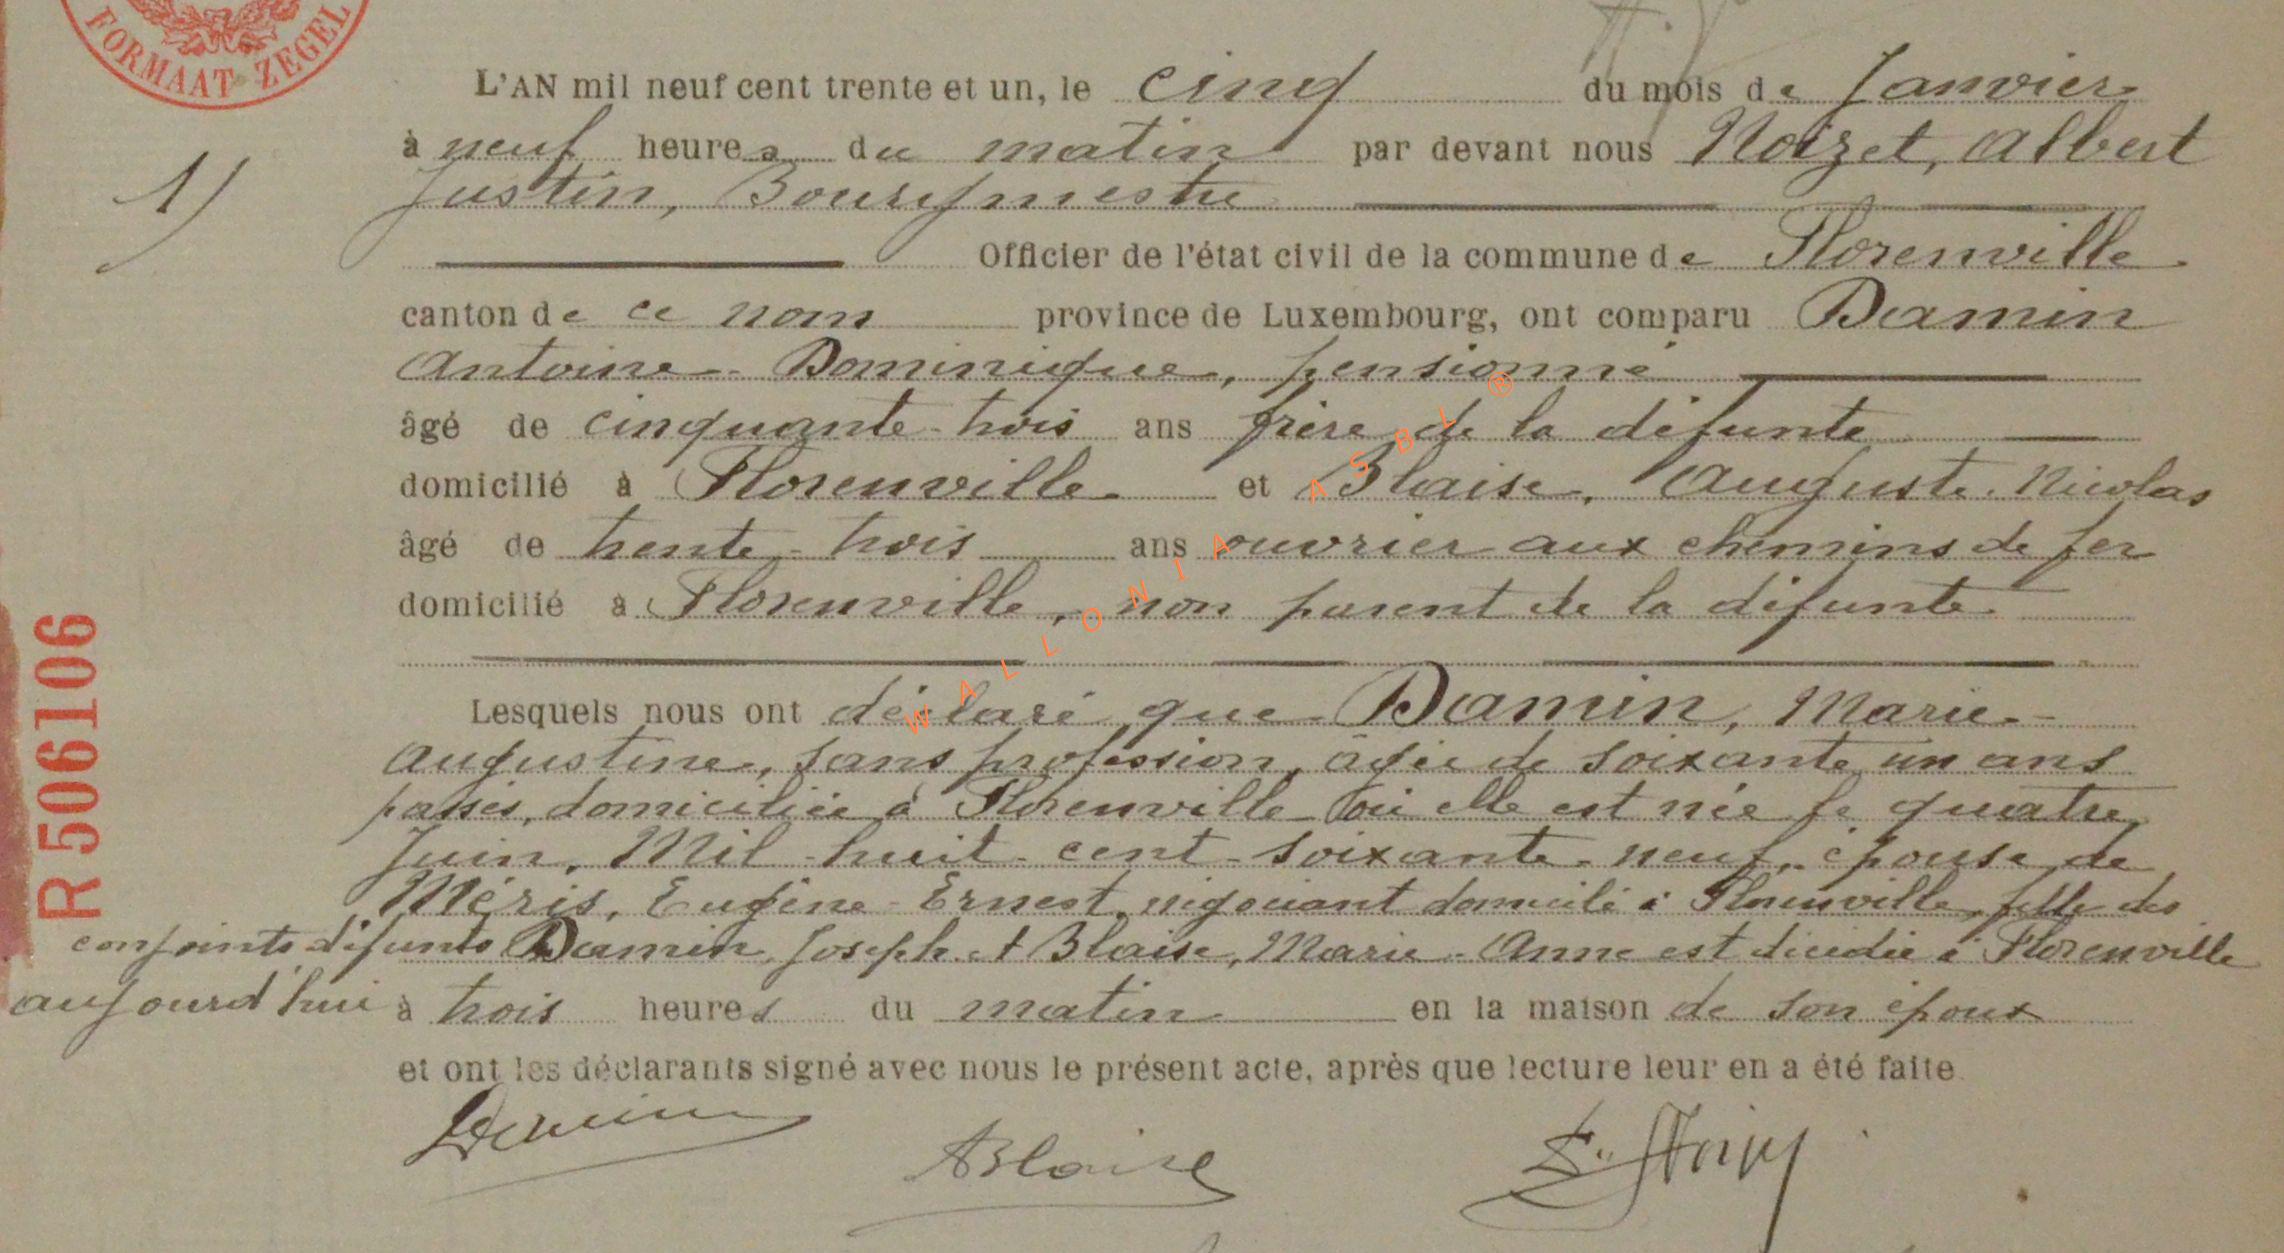 FORMAAT ZEGEL
L'AN mil neuf cent trente et un, le cinq du mois de Janvier
à neuf heures du matin par devant nous Noizet, Albert
Justin, Bourgmestre
Officier de l'état civil de la commune de Florenville
canton de ce nom province de Luxembourg, ont comparu Damin
Antoine-Dominique, pensionné
âgé de cinquante-trois ans frère de la défunte
domicilié à Florenville et Blaise, Auguste-Nicolas
âgé de trente-trois ans ouvrier aux chemins de fer
domicilié à Florenville, non parent de la défunte
1)
Lesquels nous ont déclaré que Damin, Marie-
Augustine, sans profession, âgée de soixante un ans
passés, domiciliée à Florenville où elle est née le quatre
Juin, Mil-huit-cent-soixante-neuf, épouse de
Méris, Eugène-Ernest, négociant domicilié à Florenville, fille des
conjoints défunts Damin, Joseph et Blaise, Marie-Anne est décédée à Florenville
aujourd'hui à trois heures du matin en la maison de son époux
et ont les déclarants signé avec nous le présent acte, après que lecture leur en a été faite
Damin
ABlaise
R 506106
WALLONIA ASBL ®